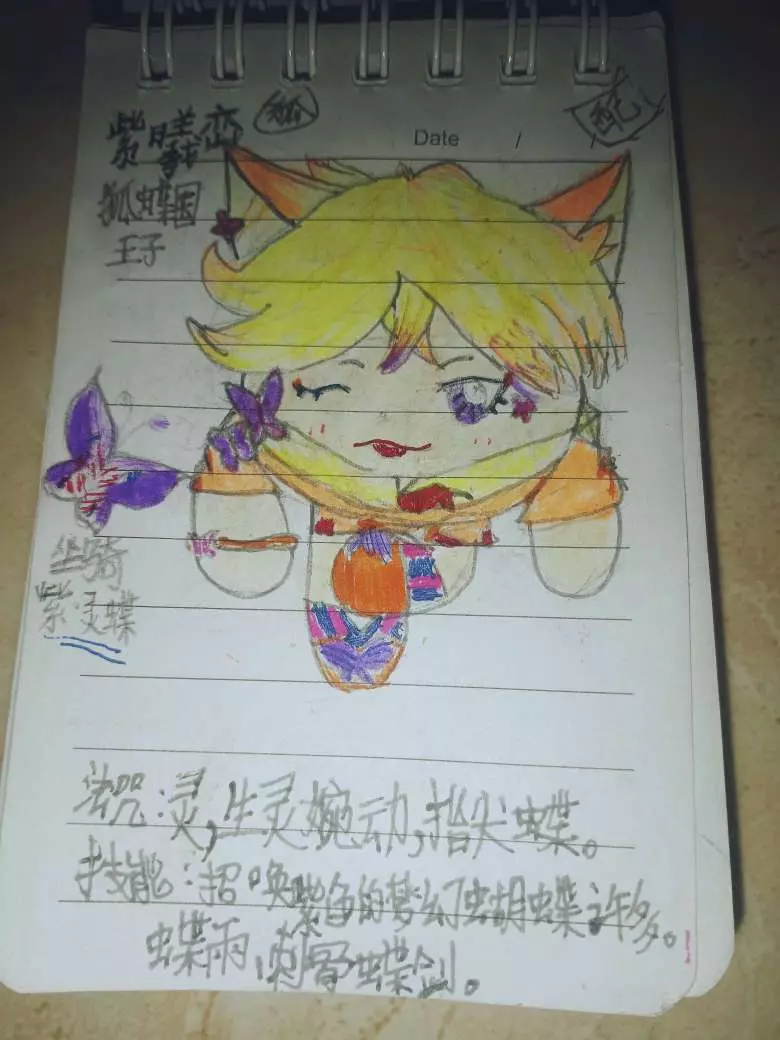 狐
Date / /
狐蝶国
王子
坐骑
紫灵蝶
法咒:灵,生灵婉动,指尖蝶。
技能:招唤紫色的梦幻蝴蝶许多。
蝶雨、刺骨蝶剑。